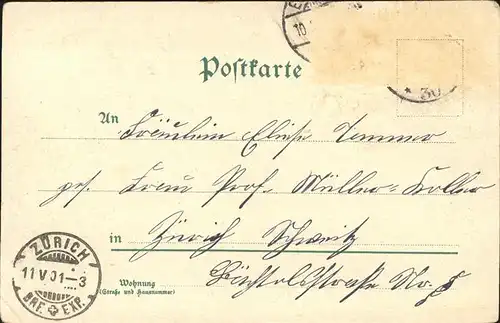 Postkarte
An Fräulein Elise Temmer
pr. Frau Prof. Müller-Koller
in Zürich Schweitz
Wohnung
(Straße und Hausnummer)
Bächtoldstraße No. 5
ZÜRICH
11 V 01 - 3
BRF. EXP.
10
* 30